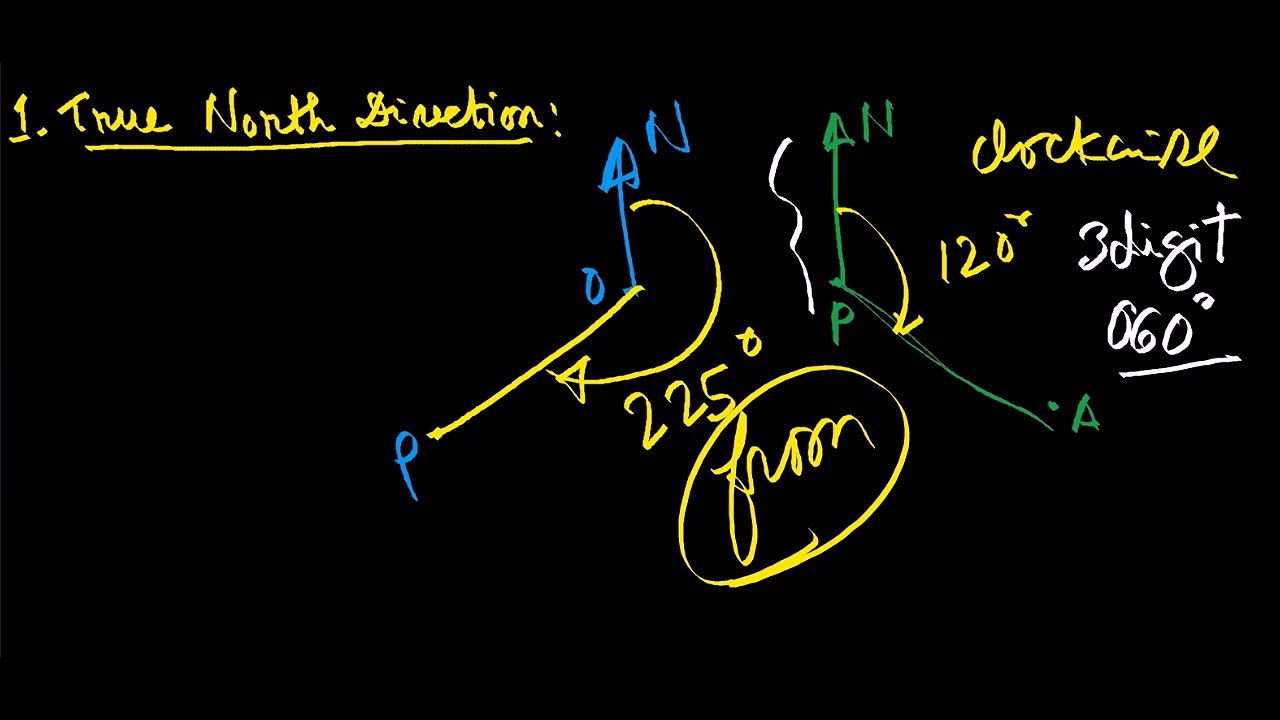 1. True North Direction:
N
O
P
225°
from
N
P
A
120°
clockwise
3digit
060°